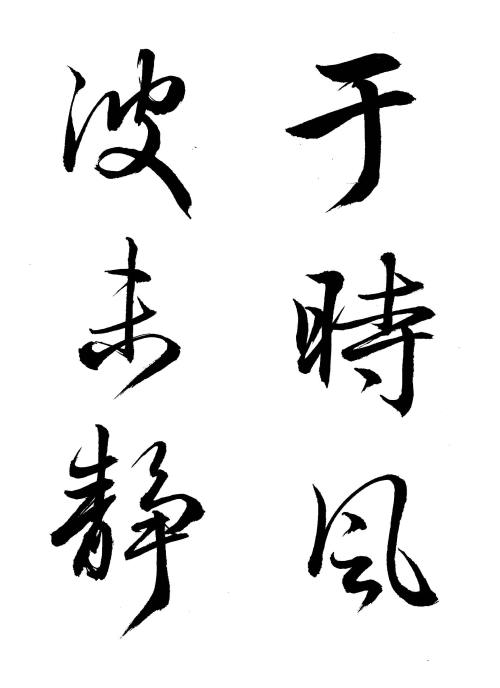 于時風
波未静